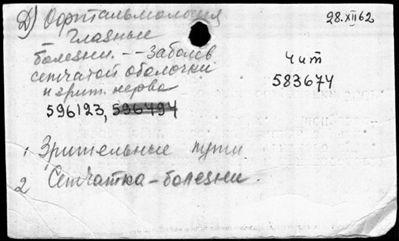 Д) Офтальмология
28.XII62
– Глазные
болезни. -- заболев
сетчатой оболочки
и зрит. нерва
чит
583674
596123, 596494
1. Зрительные пути
2 Сетчатка – болезни.